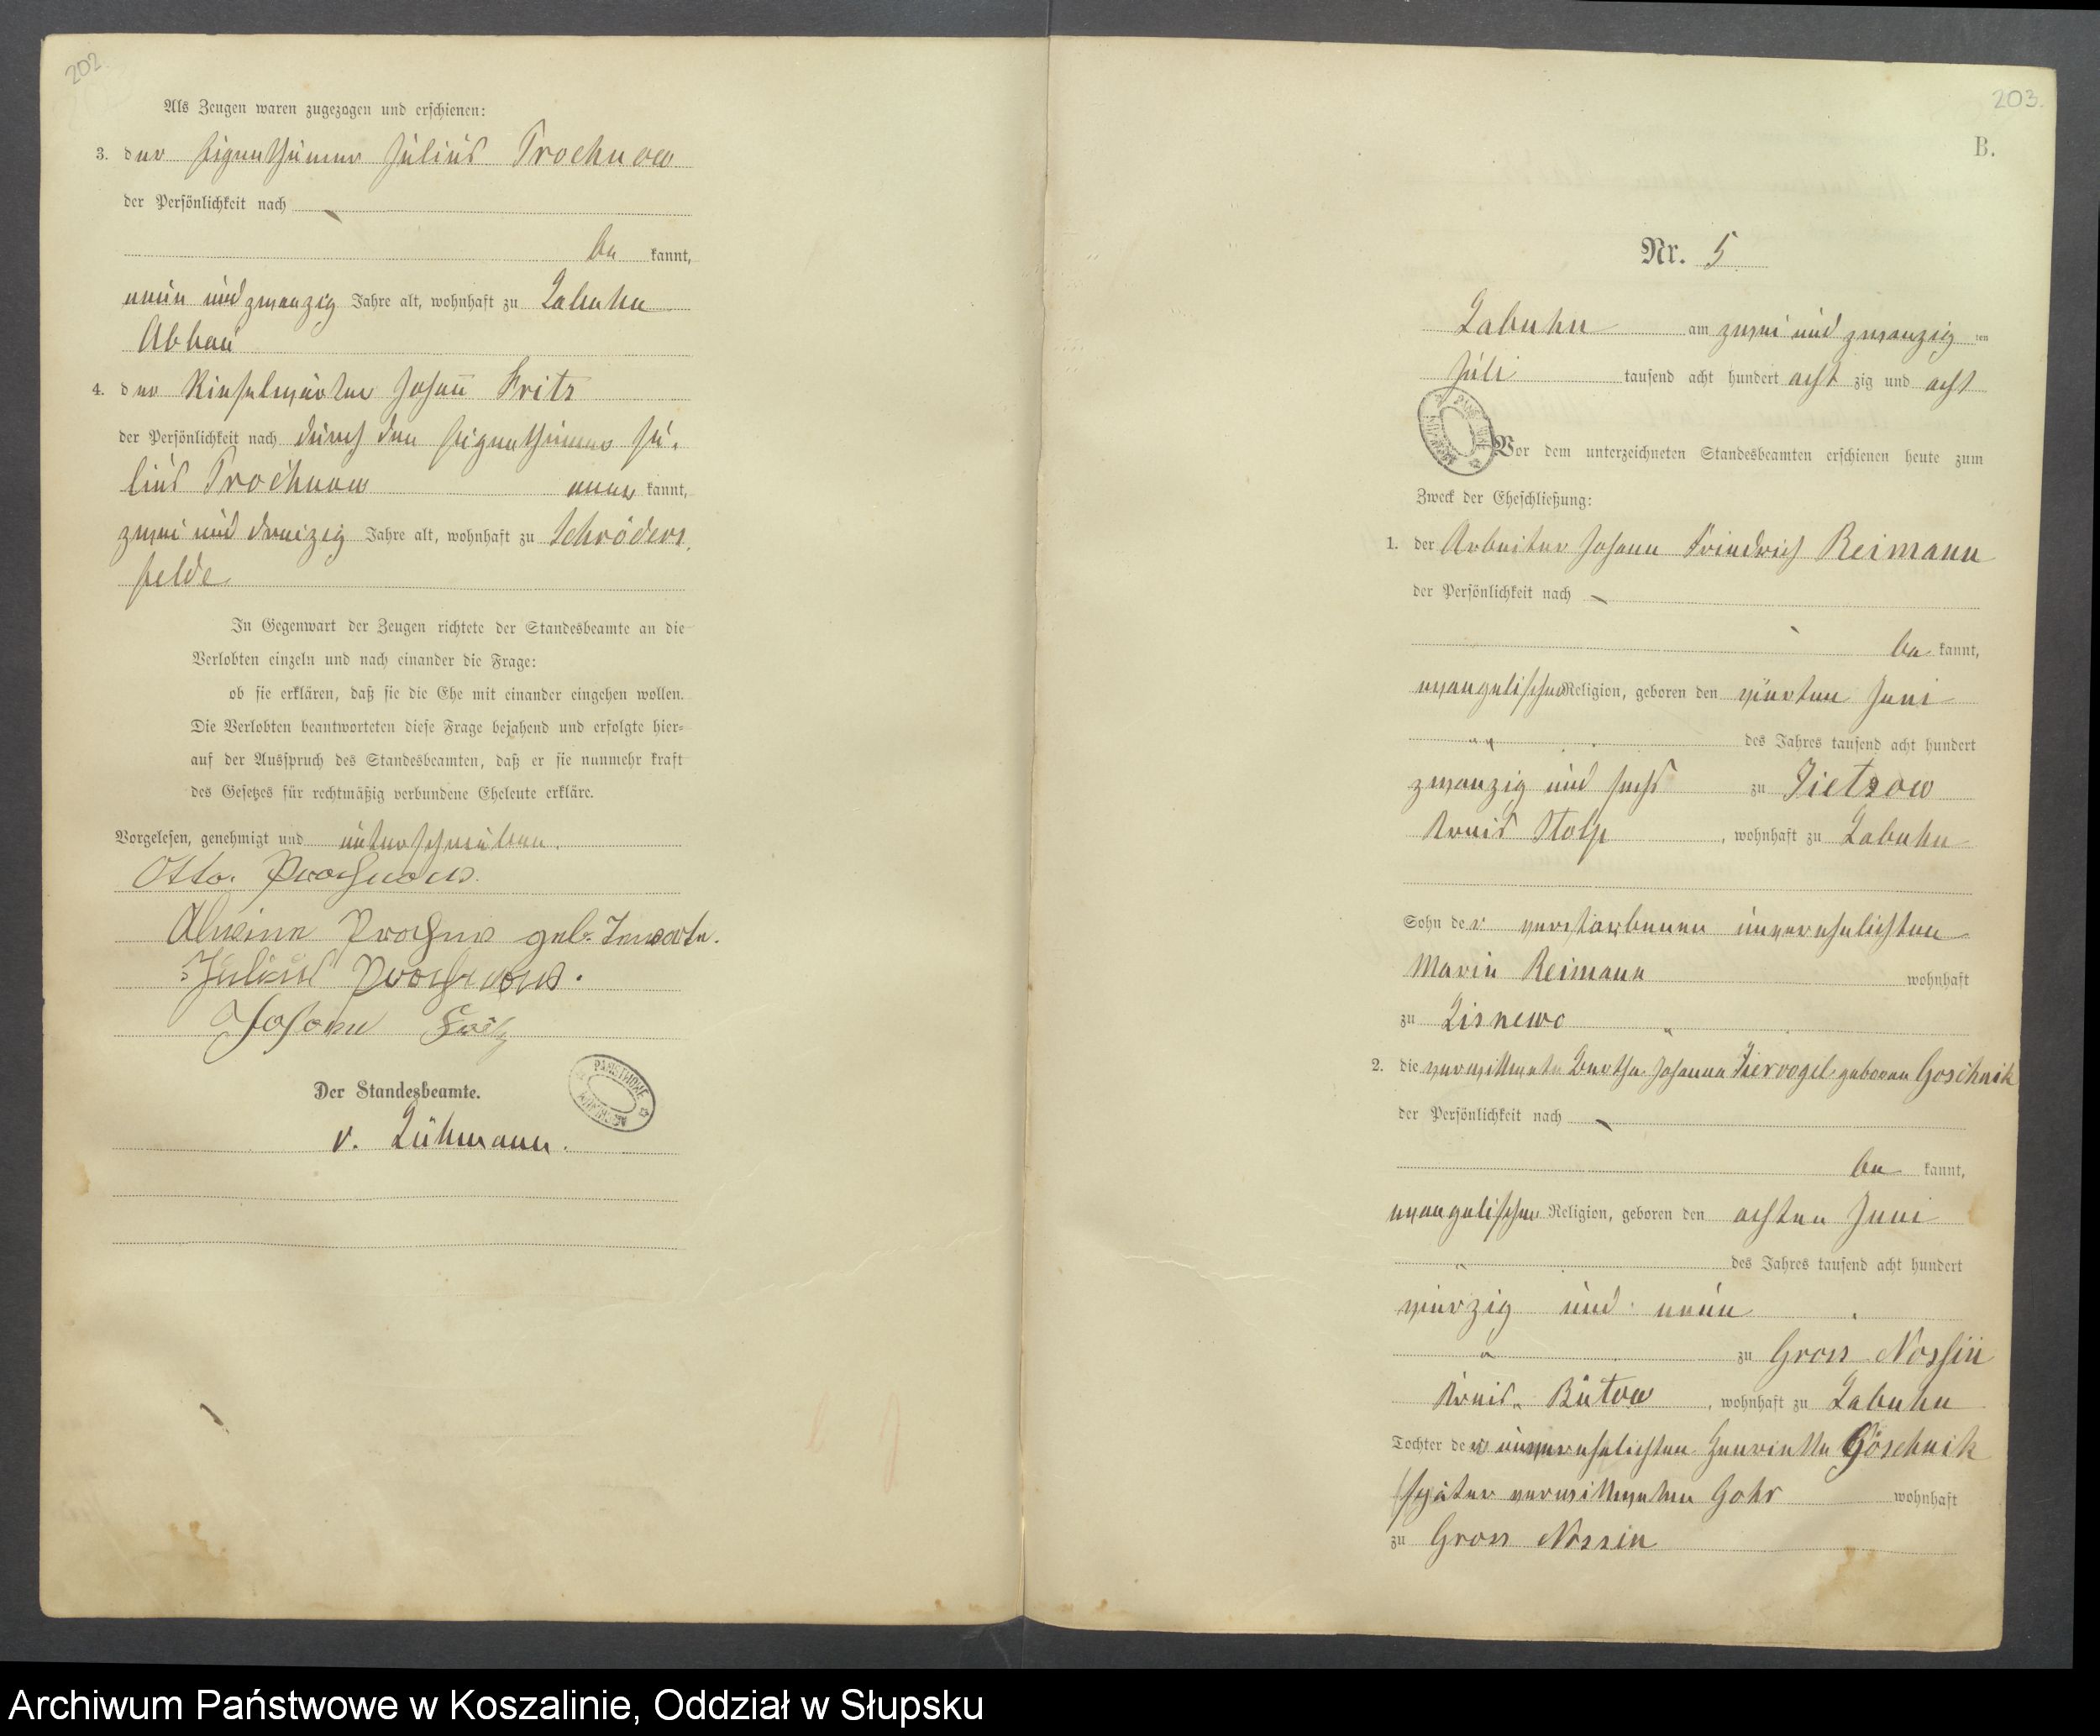 202.
Als Zeugen waren zugezogen und erschienen:
3. der Eigenthümer Julius Prochnow
der Persönlichkeit nach
be kannt,
neun und zwanzig Jahre alt, wohnhaft zu Labuhn
Abbau
4. der Rieselwärter Johann Fritz
der Persönlichkeit nach durch den Eigenthümer Ju-
lius Prochnow aner kannt,
zwei und dreizig Jahre alt, wohnhaft zu Schröders
felde
In Gegenwart der Zeugen richtete der Standesbeamte an die
Verlobten einzeln und nach einander die Frage:
ob sie erklären, daß sie die Ehe mit einander eingehen wollen.
Die Verlobten beantworteten diese Frage bejahend und erfolgte hier-
auf der Ausspruch des Standesbeamten, daß er sie nunmehr kraft
des Gesetzes für rechtmäßig verbundene Eheleute erkläre.
Vorgelesen, genehmigt und unterschrieben.
Otto Prochnow.
Alwine Prochnow geb.
Julius Prochnow.
Johann Fritz
Der Standesbeamte.
v. Lühmann.
PAŃSTWOWE ARCHIWUM
203.
B.
Nr. 5
Labuhn am zwei und zwanzig ten
Juli tausend acht hundert acht zig und acht
Vor dem unterzeichneten Standesbeamten erschienen heute zum
Zweck der Eheschließung:
1. der Arbeiter Johann Friedrich Reimann
der Persönlichkeit nach
be kannt,
evangelischer Religion, geboren den vierten Juni
des Jahres tausend acht hundert
zwanzig und sechs zu Zietzow
Kreis Stolp, wohnhaft zu Labuhn
Sohn der verstorbenen unverehelichten
Marie Reimann wohnhaft
zu Lisnewo
2. die verwittwete Bertha Johanna Ziervogel geboren Goschnik
der Persönlichkeit nach
be kannt,
evangelischer Religion, geboren den achten Juni
des Jahres tausend acht hundert
vierzig und neun
zu Gross Nossin
Kreis Bütow, wohnhaft zu Labuhn
Tochter der unverehelichten Henriette Göschnik
später verwittweten Gohr wohnhaft
zu Gross Nossin
Archiwum Państwowe w Koszalinie, Oddział w Słupsku